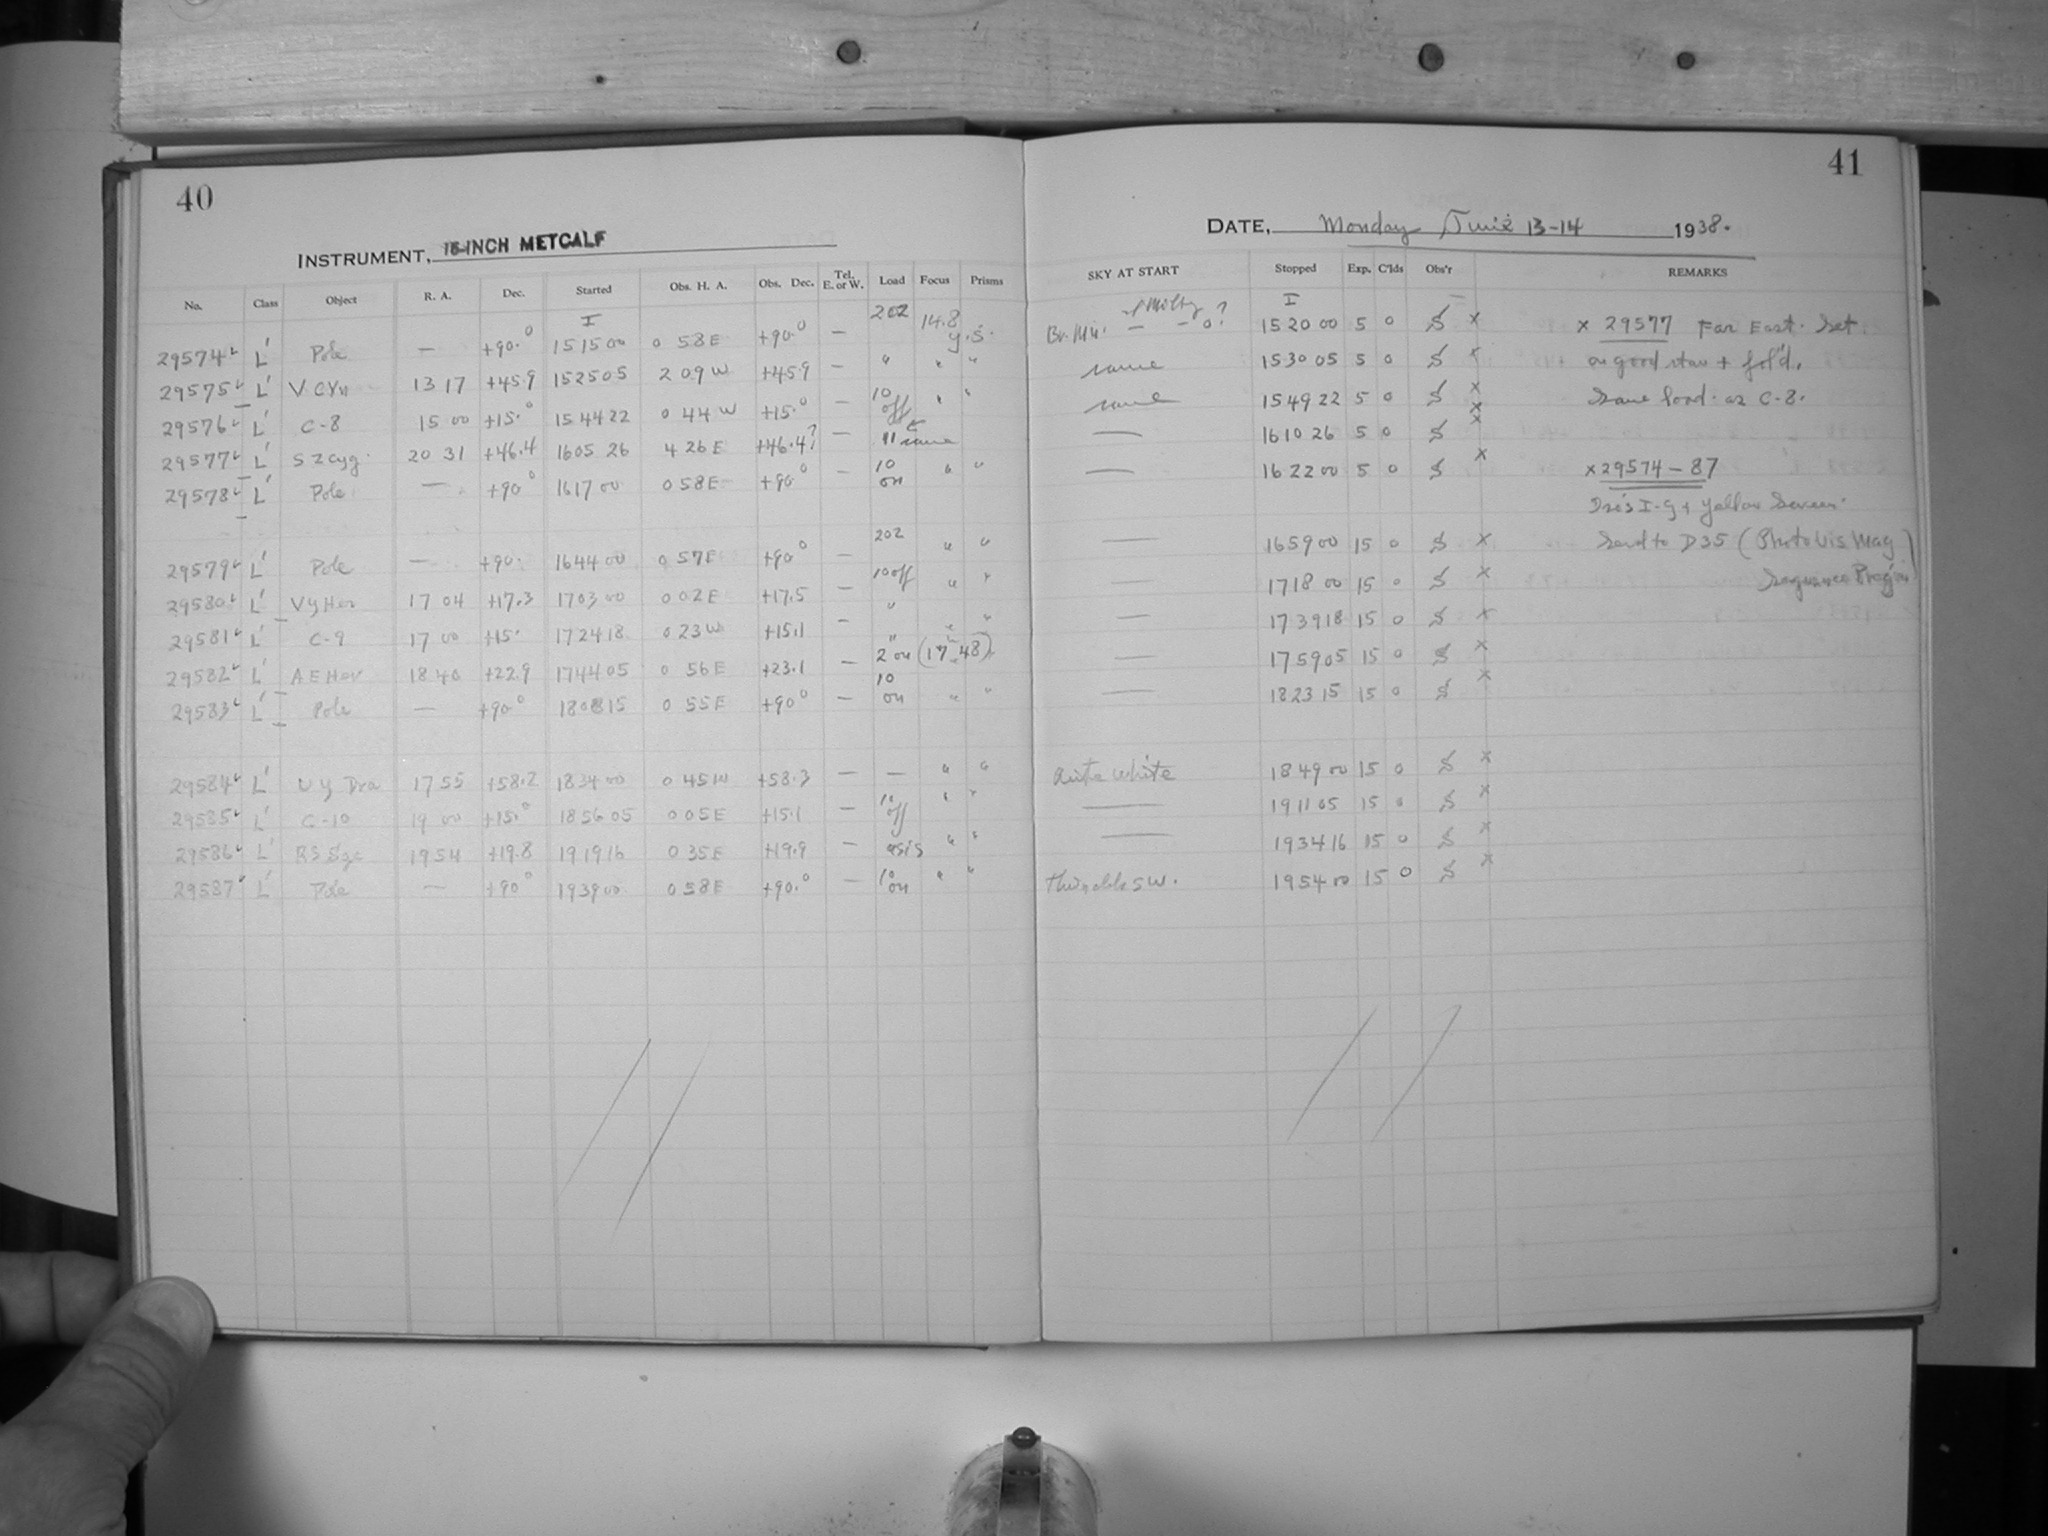 40
INSTRUMENT, 16-INCH METCALF
No. Class Object R. A. Dec. Started Obs. H. A. Obs. Dec. Tel. E. or W. Load Focus Prisms
I 202 14.8 y.s.
29574 L' Pole — +90.0 15 15 00 0 58 E +90.0 —
29575 L' V CVn 13 17 +45.9 15 25 05 2 09 W +45.9 — " " "
29576 L' C-8 15 00 +15.0 15 44 22 0 44 W +15.0 — 10 off " "
29577 L' S Z Cyg. 20 31 +46.4 16 05 26 4 26 E +46.4? — " same
29578 L' Pole — +90.0 16 17 00 0 58 E +90.0 — 10 on " "
29579 L' Pole — +90. 16 44 00 0 57 E +90.0 — 202 " "
29580 L' V Y Her 17 04 +17.3 17 03 00 0 02 E +17.5 — 10 off " "
29581 L' C-9 17 00 +15. 17 24 18 0 23 W +15.1 — " " "
29582 L' A E Her 18 40 +22.9 17 44 05 0 56 E +23.1 — " 2 on (17 48)
29583 L' Pole — +90.0 18 08 15 0 55 E +90.0 — 10 on " "
29584 L' U Y Dra 17 55 +58.2 18 34 00 0 45 W +58.3 — — " "
29585 L' C-10 19 00 +15.0 18 56 05 0 05 E +15.1 — 10 off " "
29586 L' RS Sge 19 54 +19.8 19 19 16 0 35 E +19.9 — as is " "
29587 L' Pole — +90.0 19 39 00 0 58 E +90.0 — 10 on " "
41
DATE, Monday June 13-14 1938.
SKY AT START Stopped Exp. C'lds Obs'r REMARKS
I
15 20 00 5 0 S x x 29577 Far East. Set
same 15 30 05 5 0 S x on good star + fol'd.
same 15 49 22 5 0 S x Same load as C-8.
— 16 10 26 5 0 S x
— 16 22 00 5 0 S x x 29574-87
Yellow Screen
— 16 59 00 15 0 S x Send to D35 (Photo Vis Mag
— 17 18 00 15 0 S x Sequence Program)
— 17 39 18 15 0 S x
— 17 59 05 15 0 S x
— 18 23 15 15 0 S x
Quite white 18 49 00 15 0 S x
— 19 11 05 15 0 S x
— 19 34 16 15 0 S x
SW. 19 54 00 15 0 S x